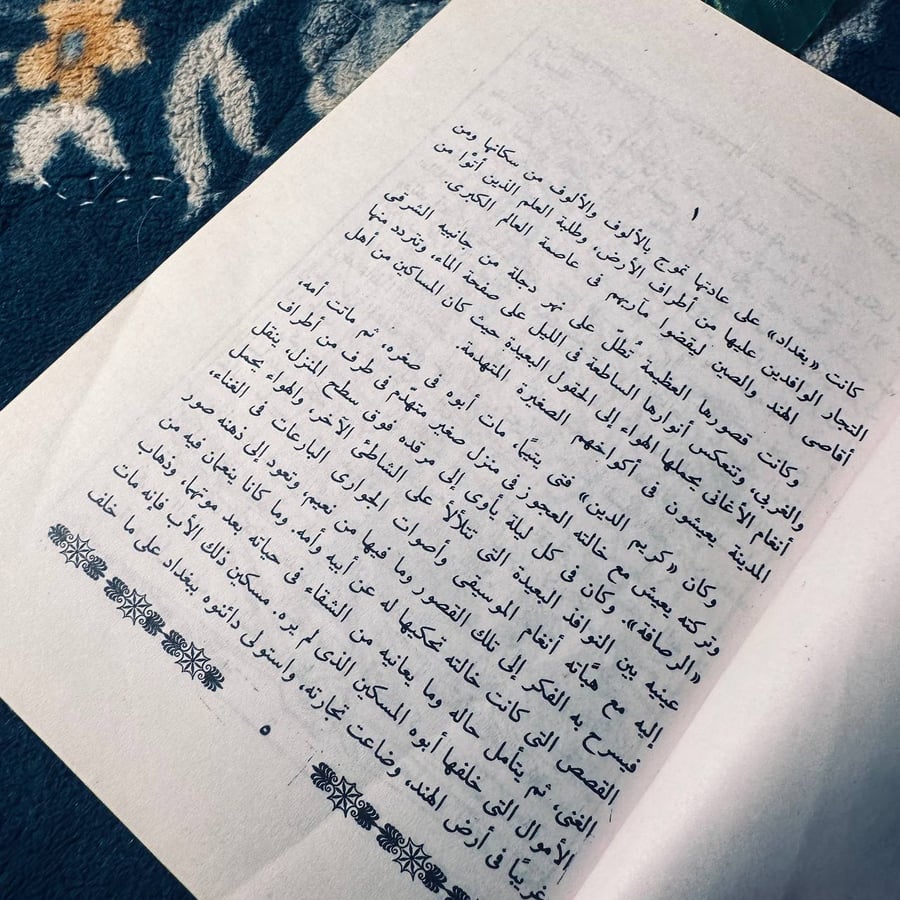 ١
كانت «بغداد» على عادتها تموج بالألوف والألوف من سكانها ومن
التجار الوافدين عليها من أطراف الأرض، وطلبة العلم الذين أتوا من
أقاصى الهند والصين ليقضوا مآربهم فى عاصمة العالم الكبرى.
وكانت قصورها العظيمة تُطلّ على نهر دجلة من جانبيه الشرقى
والغربى، وتنعكس أنوارها الساطعة فى الليل على صفحة الماء، وتتردد منها
أنغام الأغانى يحملها الهواء إلى الحقول البعيدة حيث كان المساكين من أهل
المدينة يعيشون فى أكواخهم الصغيرة المتهدمة.
وكان «كريم الدين» فتى يتيمًا، مات أبوه فى صغره، ثم ماتت أمه،
وتركته يعيش مع خالته العجوز فى منزل صغير متهدّم فى طرف من أطراف
«الرصافة». وكان فى كل ليلة يأوى إلى مرقده فوق سطح المنزل، ينقل
عينيه بين النوافذ البعيدة التى تتلألأ على الشاطئ الآخر، والهواء يحمل
إليه مع هبّاته أنغام الموسيقى وأصوات الجوارى البارعات فى الغناء،
فيسرح به الفكر إلى تلك القصور وما فيها من نعيم، وتعود إلى ذهنه صور
القصص التى كانت خالته تحكيها له عن أبيه وأمه. وما كانا ينعمان فيه من
الغنى، ثم يتأمل حاله وما يعانيه من الشقاء فى حياته بعد موتهما، وذهاب
الأموال التى خلفها أبوه المسكين الذى لم يره. مسكين ذلك الأب فإنه مات
غريبًا فى أرض الهند، وضاعت تجارته، واستولى دائنوه ببغداد على ما خلف
٥